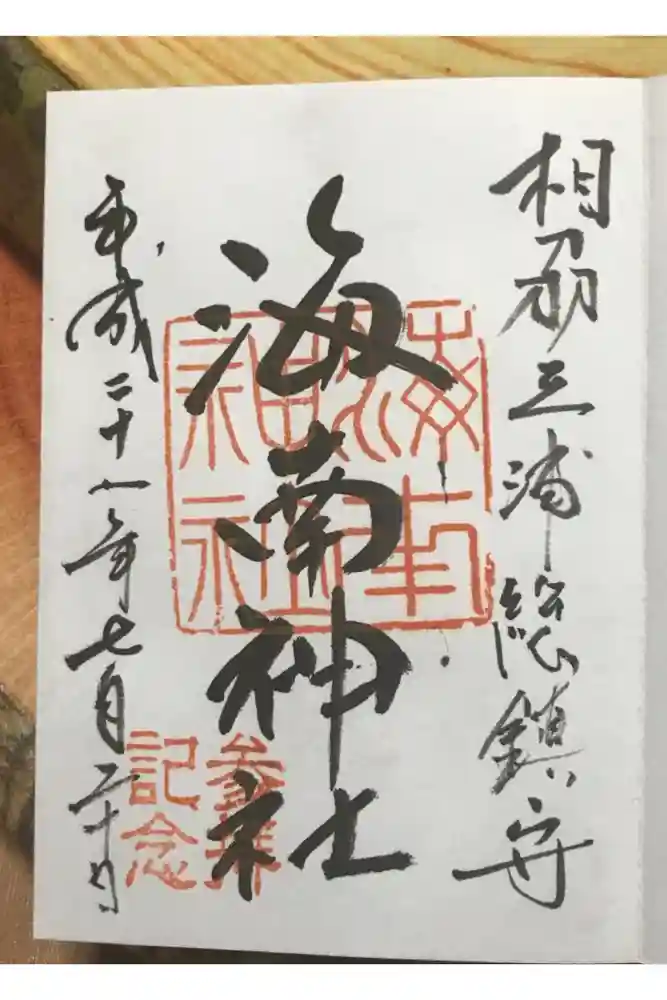 相刕三浦総鎮守
海南神社
平成二十八年七月二十日
参拝
記念